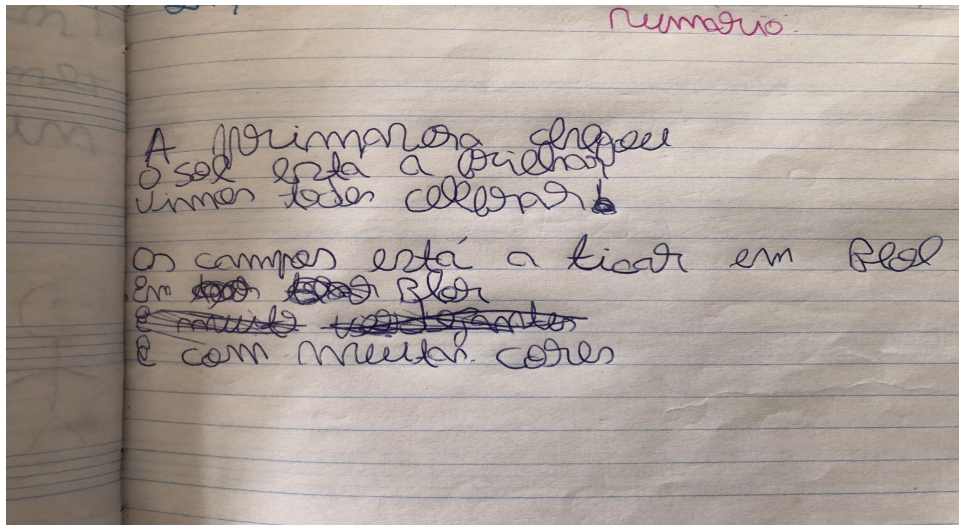 numário.
A primavera chegou
o sol esta a brilhar
vimos todos celebrar
os campos está a ficar em
em flor
e com muitas cores